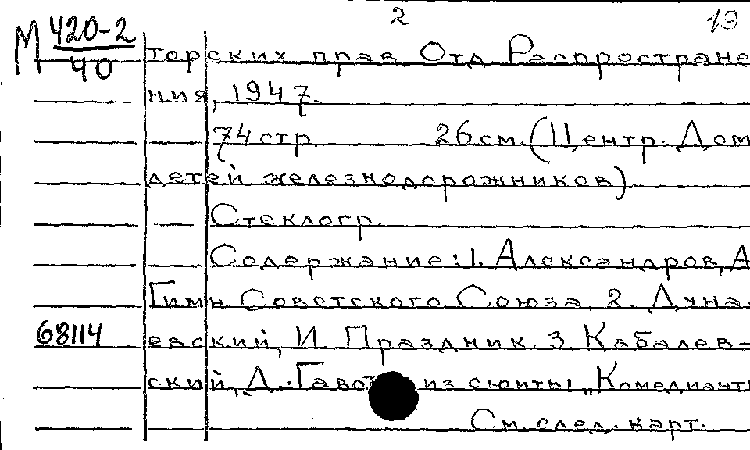 2 13
М 420-2
40
торских прав Отд Распростране
ния, 1947.
74 стр. 26 см. (Центр. Дом
детей железнодорожников)
Стеклогр.
Содержание: 1. Александров, А
Гимн Советского Союза. 2. Дуна
евский, И. Праздник. 3. Кабалев-
68114
ский, Д. Гавот из сюиты „Комедианты
См. след. карт.